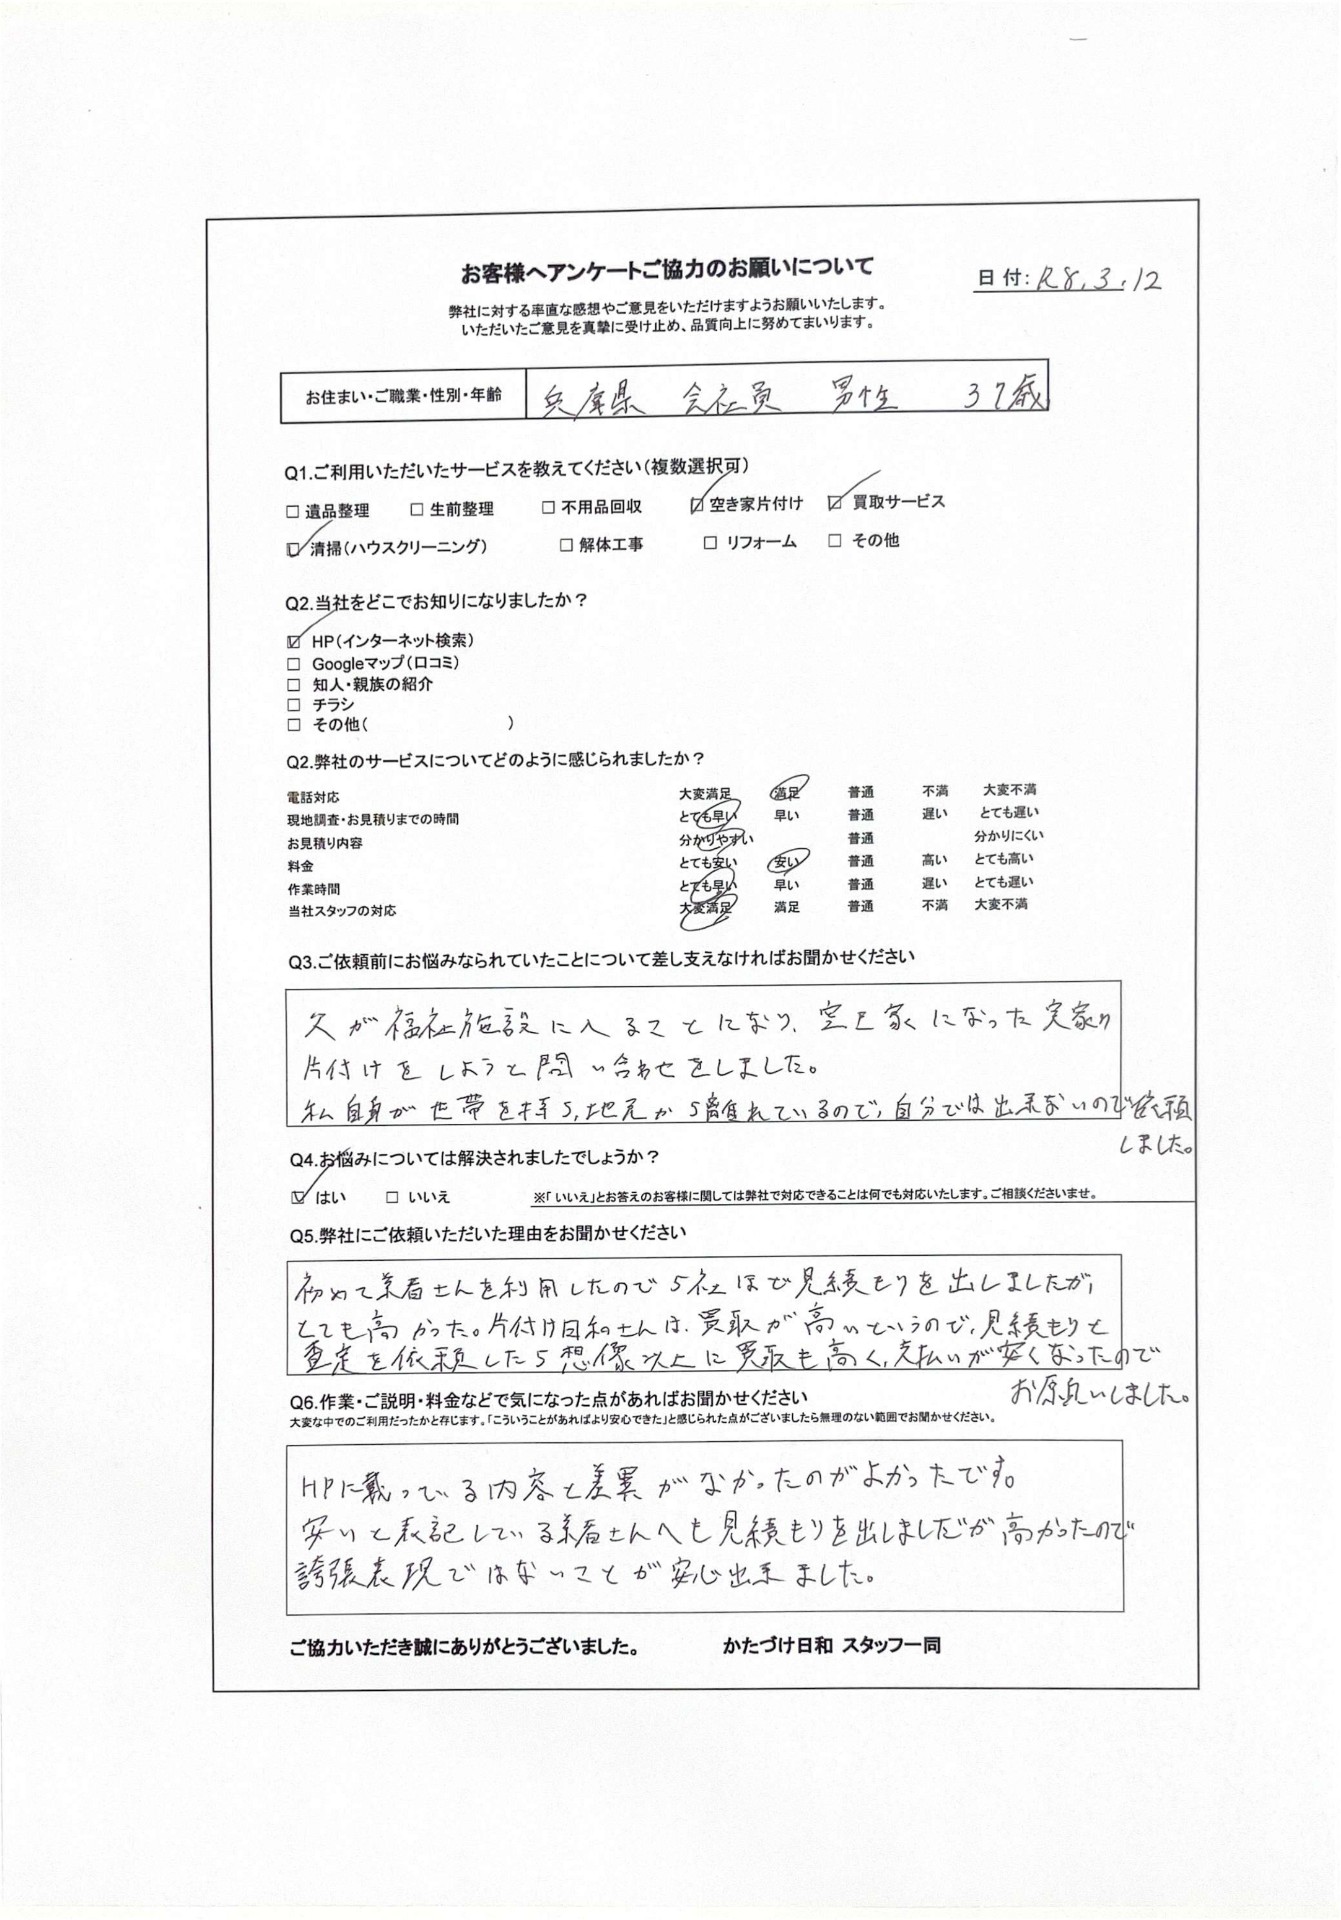 お客様へアンケートご協力のお願いについて
日付: R8.3.12
弊社に対する率直な感想やご意見をいただけますようお願いいたします。
いただいたご意見を真摯に受け止め、品質向上に努めてまいります。
お住まい・ご職業・性別・年齢 兵庫県 会社員 男性 37歳
Q1.ご利用いただいたサービスを教えてください(複数選択可)
☐ 遺品整理 ☐ 生前整理 ☐ 不用品回収 ☑ 空き家片付け ☑ 買取サービス
☑ 清掃(ハウスクリーニング) ☐ 解体工事 ☐ リフォーム ☐ その他
Q2.当社をどこでお知りになりましたか?
☑ HP(インターネット検索)
☐ Googleマップ(口コミ)
☐ 知人・親族の紹介
☐ チラシ
☐ その他( )
Q2.弊社のサービスについてどのように感じられましたか?
電話対応 大変満足 満足 普通 不満 大変不満
現地調査・お見積りまでの時間 とても早い 早い 普通 遅い とても遅い
お見積り内容 分かりやすい 普通 分かりにくい
料金 とても安い 安い 普通 高い とても高い
作業時間 とても早い 早い 普通 遅い とても遅い
当社スタッフの対応 大変満足 満足 普通 不満 大変不満
Q3.ご依頼前にお悩みなられていたことについて差し支えなければお聞かせください
父が福祉施設に入ることになり、空き家になった実家の
片付けをしようと問い合わせをしました。
私自身が世帯を持ち、地元から離れているので、自分では出来ないので依頼
しました。
Q4.お悩みについては解決されましたでしょうか?
☑ はい ☐ いいえ ※「いいえ」とお答えのお客様に関しては弊社で対応できることは何でも対応いたします。ご相談くださいませ。
Q5.弊社にご依頼いただいた理由をお聞かせください
初めて業者さんを利用したので5社ほど見積もりを出しましたが、
とても高かった。片付け日和さんは、買取が高いというので、見積もりと
査定を依頼したら想像以上に買取も高く、支払いが安くなったので
お願いしました。
Q6.作業・ご説明・料金などで気になった点があればお聞かせください
大変な中でのご利用だったかと存じます。「こういうことがあればより安心できた」と感じられた点がございましたら無理のない範囲でお聞かせください。
HPに載っている内容と差異がなかったのがよかったです。
安いと表記している業者さんへも見積もりを出しましだが高かったので
誇張表現ではないことが安心出来ました。
ご協力いただき誠にありがとうございました。 かたづけ日和 スタッフ一同